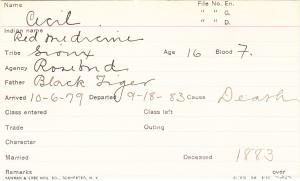 Name File No. En.
Cecil. " " D.
Indian name " " D.
Red Medicine
Tribe Sioux Age 16 Blood 7.
Agency Rosebud
Father Black Tiger
Arrived 10-6-79 Departed 9-18-83 Cause Death
Class entered Class left
Trade Outing
Character
Married Deceased 1883
Remarks over